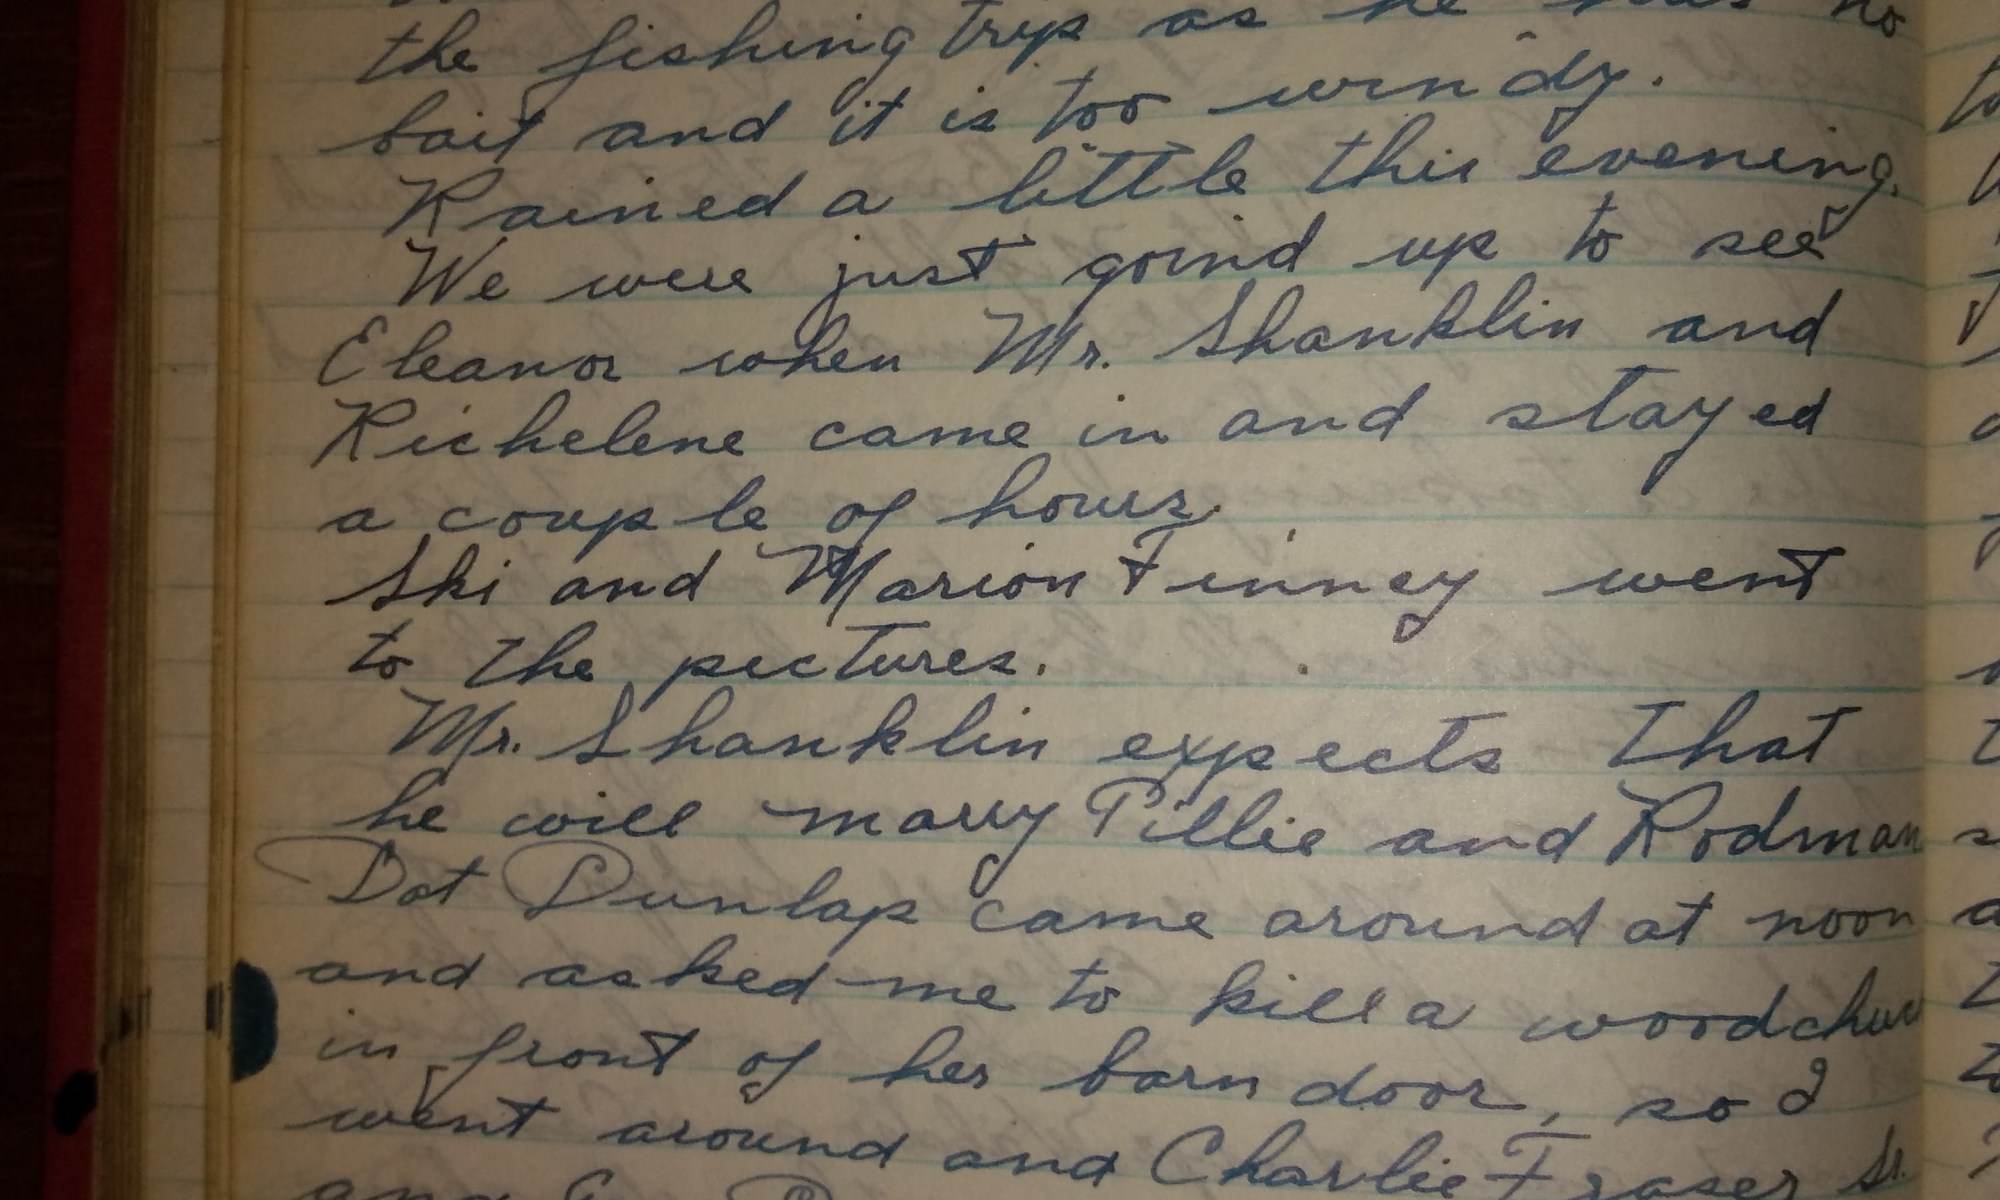 the fishing trip as he has no
bait and it is too windy.
Rained a little this evening.
We were just goind up to see
Eleanor when Mr. Shanklin and
Richelene came in and stayed
a couple of hours.
Ski and Marion Finney went
to the pictures.
Mr. Shanklin expects that
he will marry Pillie and Rodman
Dot Dunlap came around at noon
and asked me to kill a woodchuc
in front of her barn door, so I
went around and Charlie Fraser Sr.